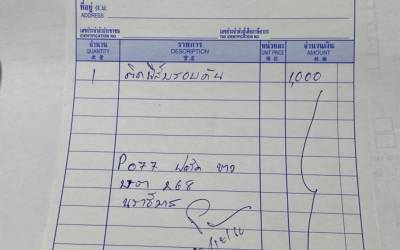 ที่อยู่
ADDRESS
เลขประจำตัวประชาชน
IDENTIFICATION NO
เลขประจำตัวผู้เสียภาษีอากร
TAX IDENTIFICATION NO
จำนวน รายการ หน่วยละ จำนวนเงิน
QUANTITY DESCRIPTION UNIT PRICE AMOUNT
1 ติดฟิล์มรอบคัน 1,000
P077 ฟอร์ด ขาว
268
นราธิวาส